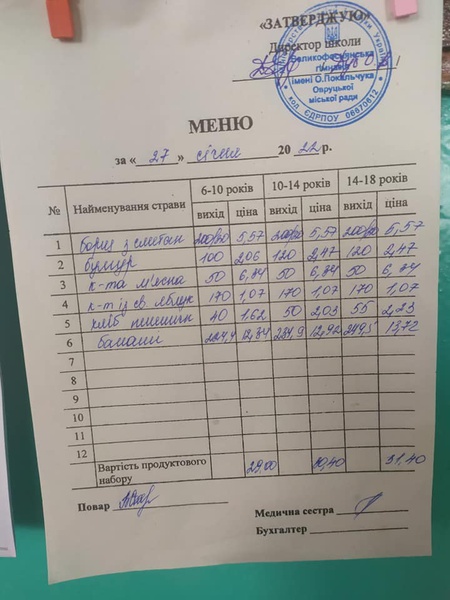 «ЗАТВЕРДЖУЮ»
Директор школи
Великофоснянська
гімназія
імені О.Покальчука
Овруцької
міської ради
код ЄДРПОУ 06670612
МЕНЮ
за « 27 » січня 20 22 р.
№ Найменування страви 6-10 років 10-14 років 14-18 років
вихід ціна вихід ціна вихід ціна
1 борщ з сметан 200/20 5,57 200/20 5,57 200/20 5,57
2 булгур 100 2,06 120 2,47 120 2,47
3 к-та м'ясна 50 6,84 50 6,84 50 6,84
4 к-т із св яблук 170 1,07 170 1,07 170 1,07
5 хліб пшеничн 40 1,62 50 2,03 55 2,23
6 банани 224,4 12,84 234,9 12,92 249,5 13,72
7
8
9
10
11
12
Вартість продуктового 29,00 30,40 31,40
набору
Повар
Медична сестра
Бухгалтер